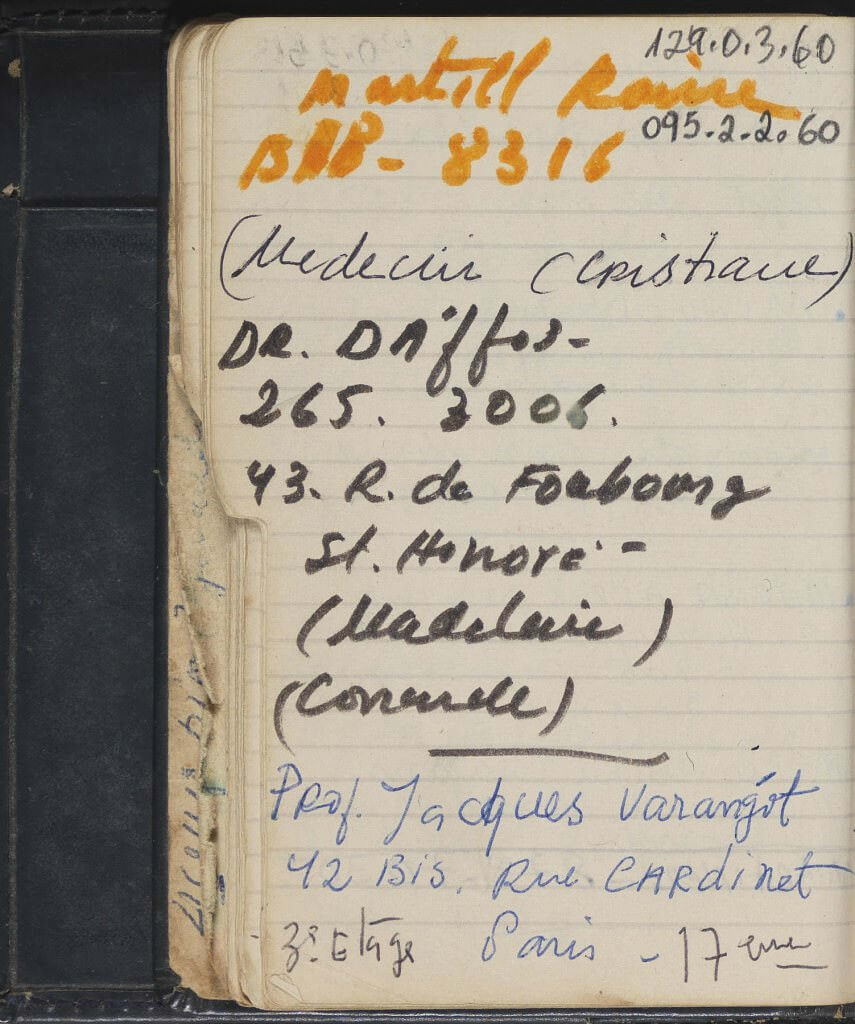 129.0.3.60
Martill Raine
095.2.2.60
BAB- 8316
(Medecin (Cristiane)
DR. DAffos-
265. 3006.
43. R. de Foubourg
St. Honoré -
(Madeleine)
(Consuelle)
Prof. Jacques Varangót
42 Bis. Rue. CARdinet
3º Etage Paris - 17 eme